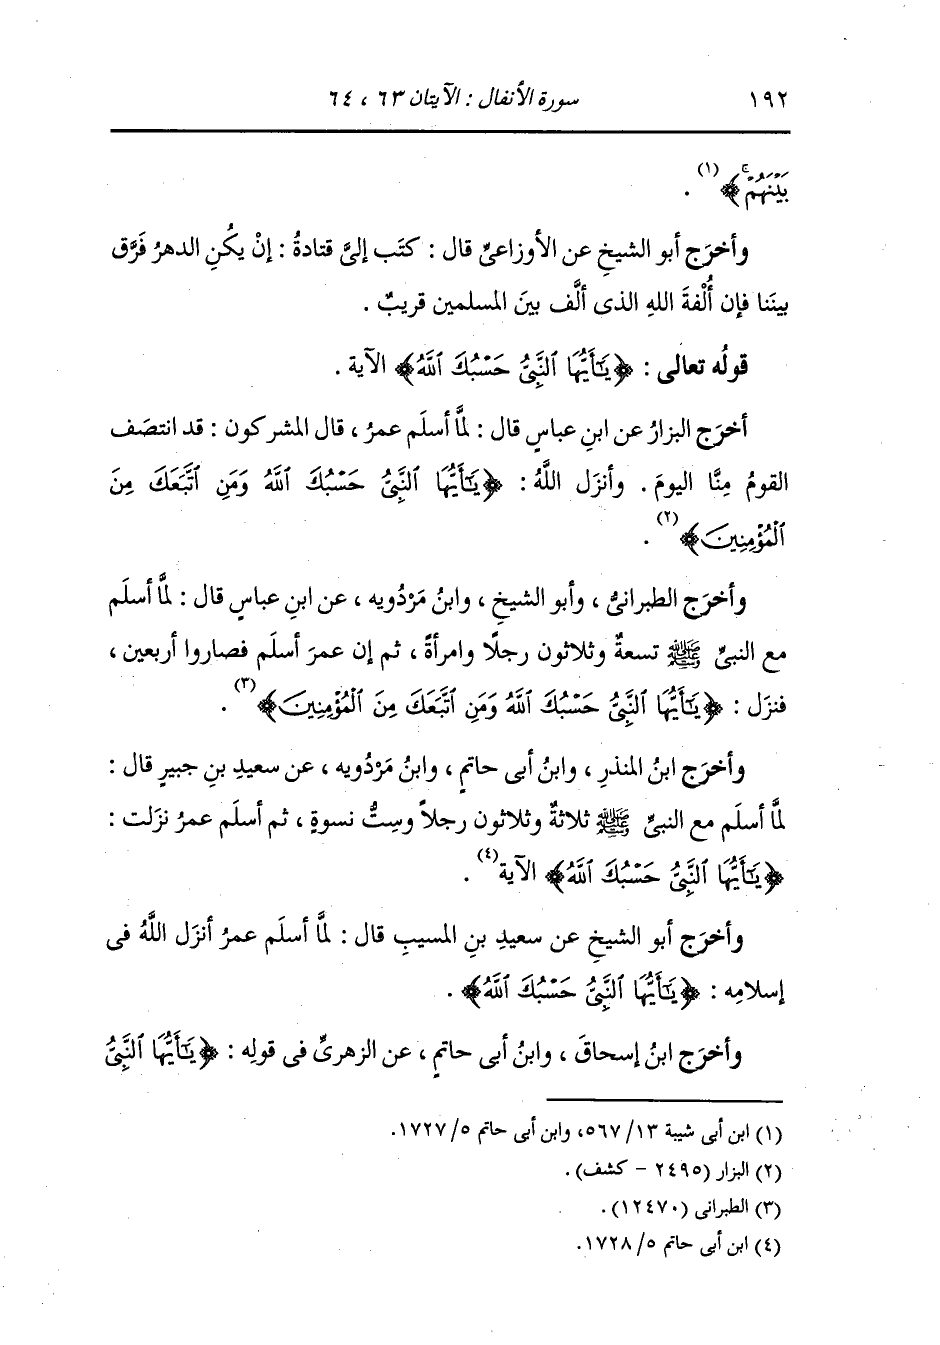 ١٩٢ سورة الأنفال : الآيتان ٦٣ ، ٦٤
بَيْنَهُمْۚ﴾(١) .
وأخرَج أبو الشيخِ عن الأوزاعىِّ قال : كتَب إلىَّ قتادةُ : إنْ يكُنِ الدهرُ فَرَّق
بينَنا فإن أُلْفةَ اللهِ الذى ألَّف بينَ المسلمين قريبٌ .
قولُه تعالى : ﴿يَٰٓأَيُّهَا ٱلنَّبِىُّ حَسْبُكَ ٱللَّهُ﴾ الآية .
أخرَج البزارُ عن ابنِ عباسٍ قال : لمَّا أسلَم عمرُ ، قال المشركون : قد انتصَف
القومُ مِنَّا اليومَ . وأنزَل اللَّهُ : ﴿يَٰٓأَيُّهَا ٱلنَّبِىُّ حَسْبُكَ ٱللَّهُ وَمَنِ ٱتَّبَعَكَ مِنَ
ٱلْمُؤْمِنِينَ﴾(٢) .
وأخرَج الطبرانىُّ ، وأبو الشيخِ ، وابنُ مَرْدُويه ، عن ابنِ عباسٍ قال : لمَّا أسلَم
مع النبىِّ ﷺ تسعةٌ وثلاثون رجلًا وامرأةً ، ثم إن عمرَ أسلَم فصاروا أربعين ،
فنزَل : ﴿يَٰٓأَيُّهَا ٱلنَّبِىُّ حَسْبُكَ ٱللَّهُ وَمَنِ ٱتَّبَعَكَ مِنَ ٱلْمُؤْمِنِينَ﴾(٣) .
وأخرَج ابنُ المنذرِ ، وابنُ أبى حاتمٍ ، وابنُ مَرْدُويه ، عن سعيدِ بنِ جبيرٍ قال :
لمَّا أسلَم مع النبىِّ ﷺ ثلاثةٌ وثلاثون رجلاً وسِتُّ نسوةٍ ، ثم أسلَم عمرُ نزَلت :
﴿يَٰٓأَيُّهَا ٱلنَّبِىُّ حَسْبُكَ ٱللَّهُ﴾ الآية(٤) .
وأخرَج أبو الشيخِ عن سعيدِ بنِ المسيبِ قال : لمَّا أسلَم عمرُ أنزَل اللَّهُ فى
إسلامِه : ﴿يَٰٓأَيُّهَا ٱلنَّبِىُّ حَسْبُكَ ٱللَّهُ﴾ .
وأخرَج ابنُ إسحاقَ ، وابنُ أبى حاتمٍ ، عن الزهرىِّ فى قولِه : ﴿يَٰٓأَيُّهَا ٱلنَّبِىُّ
(١) ابن أبى شيبة ١٣/ ٥٦٧، وابن أبى حاتم ٥/ ١٧٢٧.
(٢) البزار (٢٤٩٥ - كشف).
(٣) الطبرانى (١٢٤٧٠).
(٤) ابن أبى حاتم ٥/ ١٧٢٨.